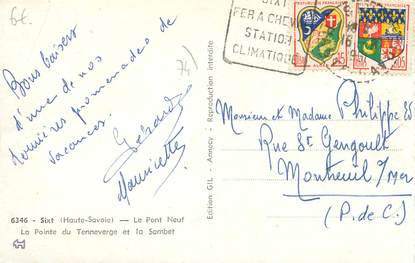 6f.
(74)
Bons baisers
d'une de nos
dernières promenades de
vacances.
Gérard
Mauricette
6346 - Sixt (Haute-Savoie) — Le Pont Neuf
La Pointe du Tenneverge et la Sambet
Edition GIL - Annecy - Reproduction interdite
SIXT
FER A CHEV
STATION
CLIMATIQUE
REPUBLIQUE FRANÇAISE
0,05
Monsieur et Madame Philippe
Rue St Gengoult
Montreuil s/Mer
(P. de C.)